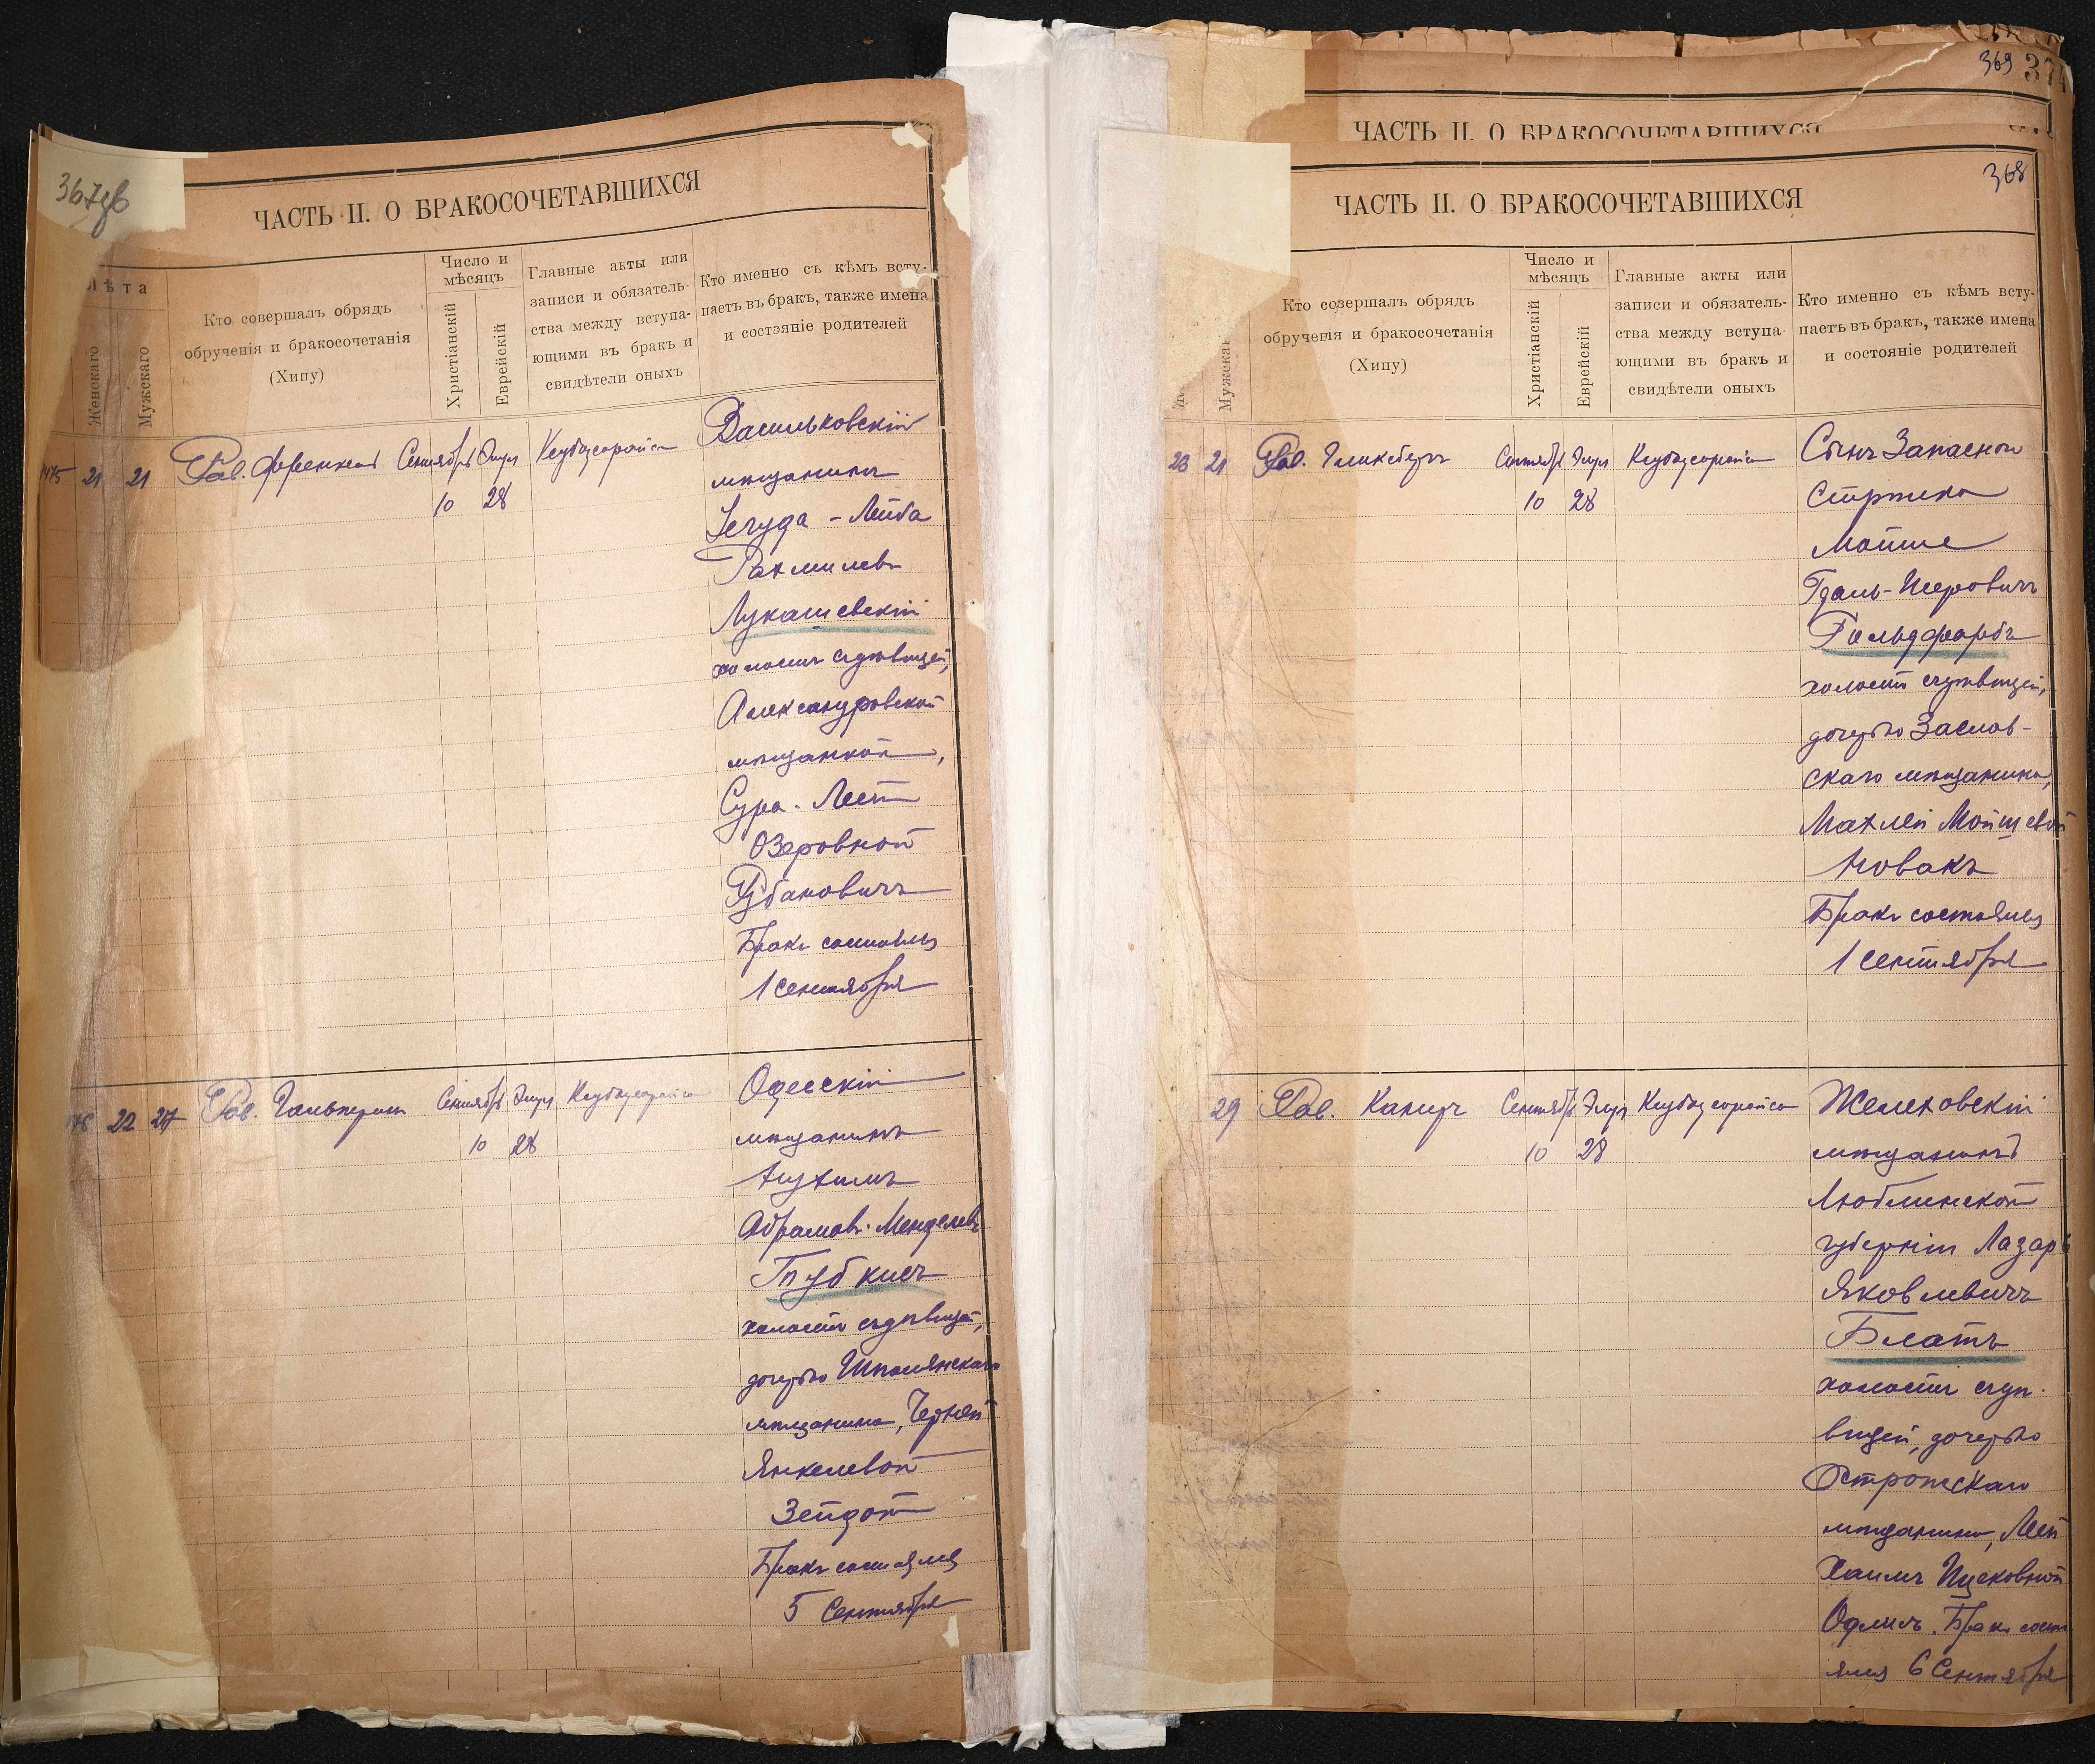 367об
ЧАСТЬ II. О БРАКОСОЧЕТАВШИХСЯ
Лѣта
Женскаго
Мужскаго
Кто совершалъ обрядъ
обрученія и бракосочетанія
(Хипу)
Число и
мѣсяцъ
Христіанскій
Еврейскій
Главные акты или
записи и обязатель-
ства между вступа-
ющими въ бракъ и
свидѣтели оныхъ
Кто именно съ кѣмъ всту-
паетъ въ бракъ, также имена
и состояніе родителей
21 21 Раб. Френкель Сентябрь Элул
10 28
Васильковскій
мѣщанинъ
Іегуда-Лейба
Рахмилев
Лукашевскій
холостъ
Александровской
мѣщанкой,
Сура-Леей
Озеровной
Рубановичъ
Бракъ состоялся
1 сентября
22 27 Раб. Гальперинъ Сентябрь Элул
10 28
Одесскій
мѣщанинъ
Нухимъ
Абрамов-Менделевъ
Трубкисъ
холостъ
дочерью Шполянскаго
мѣщанина, Черней
Янкелевой
Зейдой
Бракъ состоялся
5 Сентября
369 374
ЧАСТЬ II. О БРАКОСОЧЕТАВШИХСЯ
368
ЧАСТЬ II. О БРАКОСОЧЕТАВШИХСЯ
Мужскаг
Кто совершалъ обрядъ
обрученія и бракосочетанія
(Хипу)
Число и
мѣсяцъ
Христіанскій
Еврейскій
Главные акты или
записи и обязатель-
ства между вступа-
ющими въ бракъ и
свидѣтели оныхъ
Кто именно съ кѣмъ всту-
паетъ въ бракъ, также имена
и состояніе родителей
21 Раб. Гликсбергъ Сентябрь Элул
10 28
Сынъ Запаснаго
Стрѣлка
Мойше
Гдаль-Шеровичъ
Гольдфарбъ
холостъ
дочерью Заслав-
скаго мѣщанина,
Махлей Мойшевой
Новакъ
Бракъ состоялся
1 сентября
29 Раб. Канеръ Сентябрь Элул
10 28
Желеховскій
мѣщанинъ
Люблинской
губерніи Лазарь
Яковлевичъ
Блатъ
холостъ
дочерью
Острожскаго
мѣщанина, Леей
Хаимъ Ицковной
Бракъ состо
ялся 6 Сентября